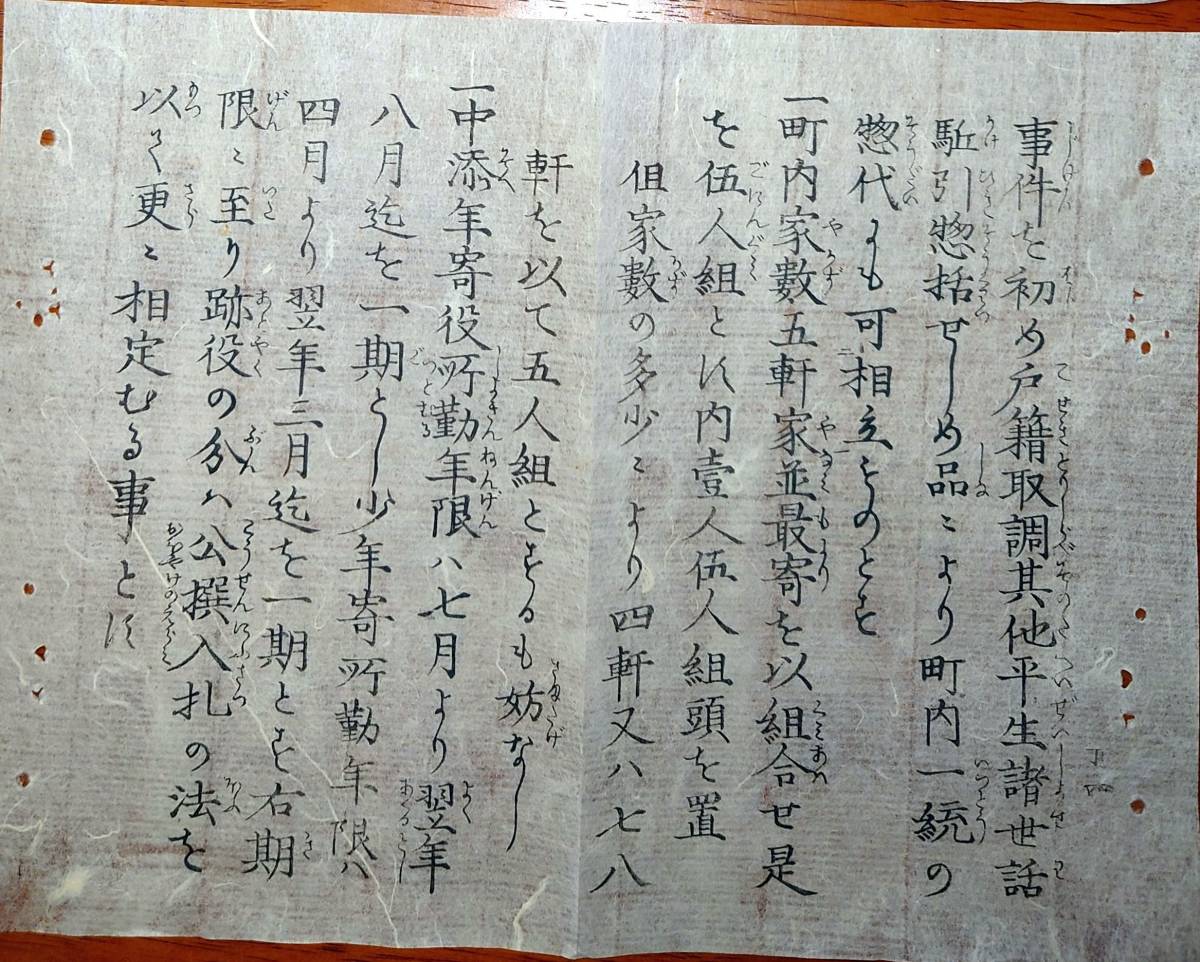 事件を初め戸籍取調其他平生諸世話
駈引惣括せしめ品ニより町内一統の
惣代にも可相立ものとす
一町内家數五軒家並最寄を以組合せ是
を伍人組とす内壹人伍人組頭を置
但家數の多少ニより四軒又ハ七八
軒を以て五人組とするも妨なし
一中添年寄役所勤年限ハ七月より翌年
八月迄を一期とし少年寄所勤年限ハ
四月より翌年三月迄を一期とす右期
限ニ至り跡役の分ハ公撰入札の法を
以て更ニ相定むる事とす